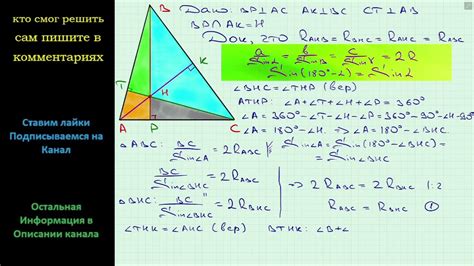 кто смог решить
сам пишите в
комментариях
Ставим лайки
Подписываемся на
Канал
Остальная
Информация в
Описании канала
B
T
K
H
A
P
C
Дано: BP⊥AC AK⊥BC CT⊥AB
BP∩AK=H
Док, что R_ABC=R_BHC=R_AHC=R_ABC
a/Sin∠ = b/Sinβ = c/Sinγ = 2R
Sin(180°-∠)=Sin∠
∠BHC=∠THP (вер)
ATHP: ∠A+∠T+∠H+∠P=360°
∠A=360°-∠T-∠H-∠P=360°-90°-∠H-90°
∠A=180°-∠H. ⇒ ∠A=180°-∠BHC.
△ABC: BC/Sin∠A = 2R_ABC Sin∠A=Sin(180°-∠BHC)=
=Sin∠BHC
BC/Sin∠BHC = 2R_ABC
⇒ 2R_ABC=2R_BHC |:2
△BHC: BC/Sin∠BHC = 2R_BHC
R_ABC=R_BHC ①
∠THK=∠AHC (вер) BTHK: ∠B+∠